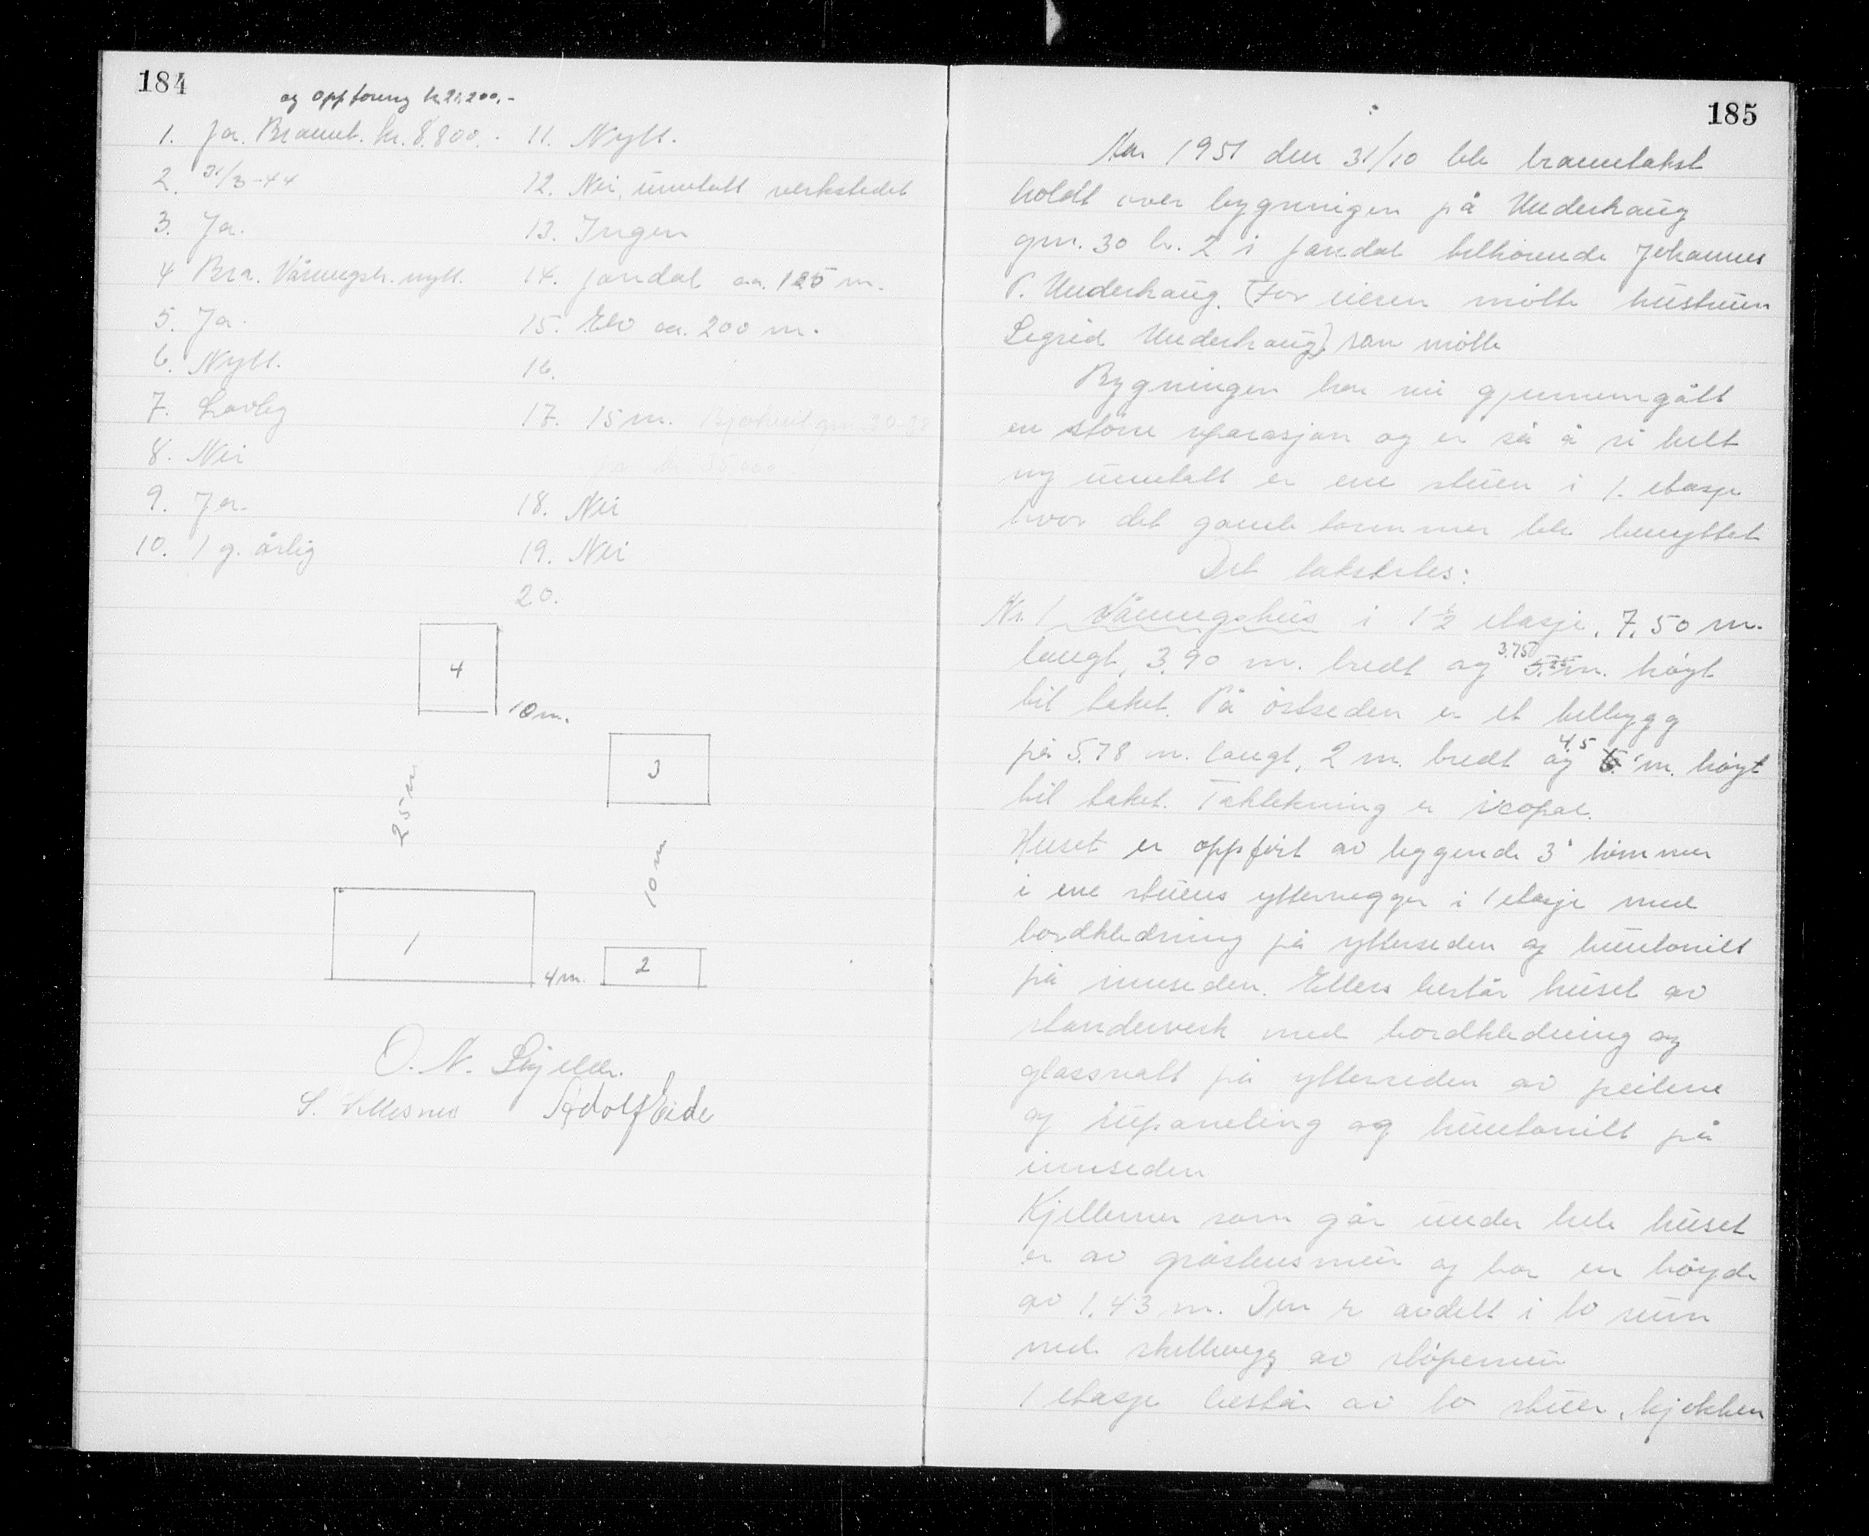 184
og oppforing kr 21200,-
1. Ja. Brannt. kr. 8.800.-
2. 31/3-44
3. Ja.
4 Bra. Våningsh. nytt.
5. Ja.
6. Nytt.
7. Lovleg
8. Nei
9. Ja.
10. 1 g. årlig
11. Nytt.
12. Nei, unntatt verkstedet
13. Ingen
14. Jondal ca. 125 m.
15. Elv ca. 200 m.
16.
17. 15 m.
18. Nei
19. Nei
20.
4
10 m.
3
25 m
10 m
1
4 m.
2
O. N. Skjeldr.
S. Villesnes Adolf Eide
185
Aar 1951 den 31/10 ble branntakst
holdt over bygningen på Underhaug
gnr. 30 br. 2 i Jondal tilhørende Johannes
P. Underhaug. (For eieren møtte hustruen
Sigrid Underhaug) som møtte
Bygningen har nu gjennemgått
en større reparasjon og er så å si helt
ny unntatt er ene stuen i 1. etasje
hvor det gamle tømmer ble benyttet
Det taksteres:
Nr. 1 Våningshus i 1 1/2 etasje, 7,50 m.
langt, 3,90 m. bredt og 3.75 m. høgt
til taket. På østseden er et tilbygg
på 5.78 m. langt, 2 m. bredt og 4,5 m. høyt
til taket. Taktekning er icopal.
Huset er oppført av liggende 3" tømmer
i ene stuens yttervegger i 1 etasje med
bordkledning på ytterseden og huntonitt
på innseden. Ellers består huset av
standerverk med bordkledning og
glassvatt på ytterseden av peilene
og rupaneling og huntonitt på
innseden
Kjelleren som går under hele huset
er av gråstensmur og har en høyde
av 1,43 m. Den er avdelt i to rum
med skillevegg av støpemur
1 etasje består av to stuer, kjøkken